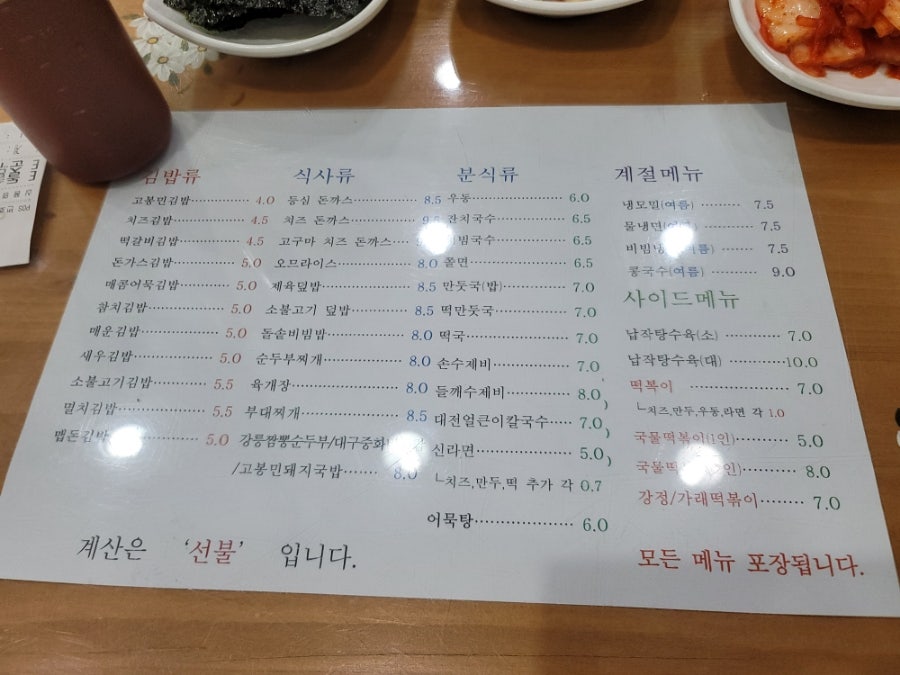 김밥류
고봉민김밥 4.0
치즈김밥 4.5
떡갈비김밥 4.5
돈가스김밥 5.0
매콤어묵김밥 5.0
참치김밥 5.0
매운김밥 5.0
새우김밥 5.0
소불고기김밥 5.5
멸치김밥 5.5
맵돈김밥 5.0
식사류
등심 돈까스 8.5
치즈 돈까스
고구마 치즈 돈까스
오므라이스 8.0
제육덮밥 8.5
소불고기 덮밥 8.5
돌솥비빔밥 8.0
순두부찌개 8.0
육개장 8.0
부대찌개 8.5
강릉짬뽕순두부/대구중화
/고봉민돼지국밥 8.0
분식류
우동 6.0
잔치국수 6.5
비빔국수 6.5
쫄면 6.5
만둣국(밥) 7.0
떡만둣국 7.0
떡국 7.0
손수제비 7.0
들깨수제비 8.0
대전얼큰이칼국수 7.0
신라면 5.0
└치즈,만두,떡 추가 각 0.7
어묵탕 6.0
계절메뉴
냉모밀(여름) 7.5
물냉면(여름) 7.5
비빔냉면(여름) 7.5
콩국수(여름) 9.0
사이드메뉴
납작탕수육(소) 7.0
납작탕수육(대) 10.0
떡볶이 7.0
└치즈,만두,우동,라면 각 1.0
국물떡볶이(1인) 5.0
국물떡 인) 8.0
강정/가래떡볶이 7.0
계산은 '선불' 입니다.
모든 메뉴 포장됩니다.